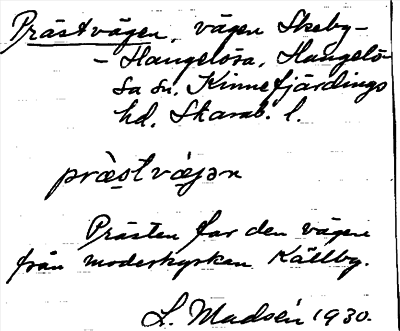 Prästvägen, vägen Skeby-
- Hangelösa, Hangelö-
sa sn. Kinnefjärdings
hd. Skarab. l.
præ̀stvæ̀jən
Prästen far den vägen
från moderkyrkan Källby.
L. Madsén 1930.